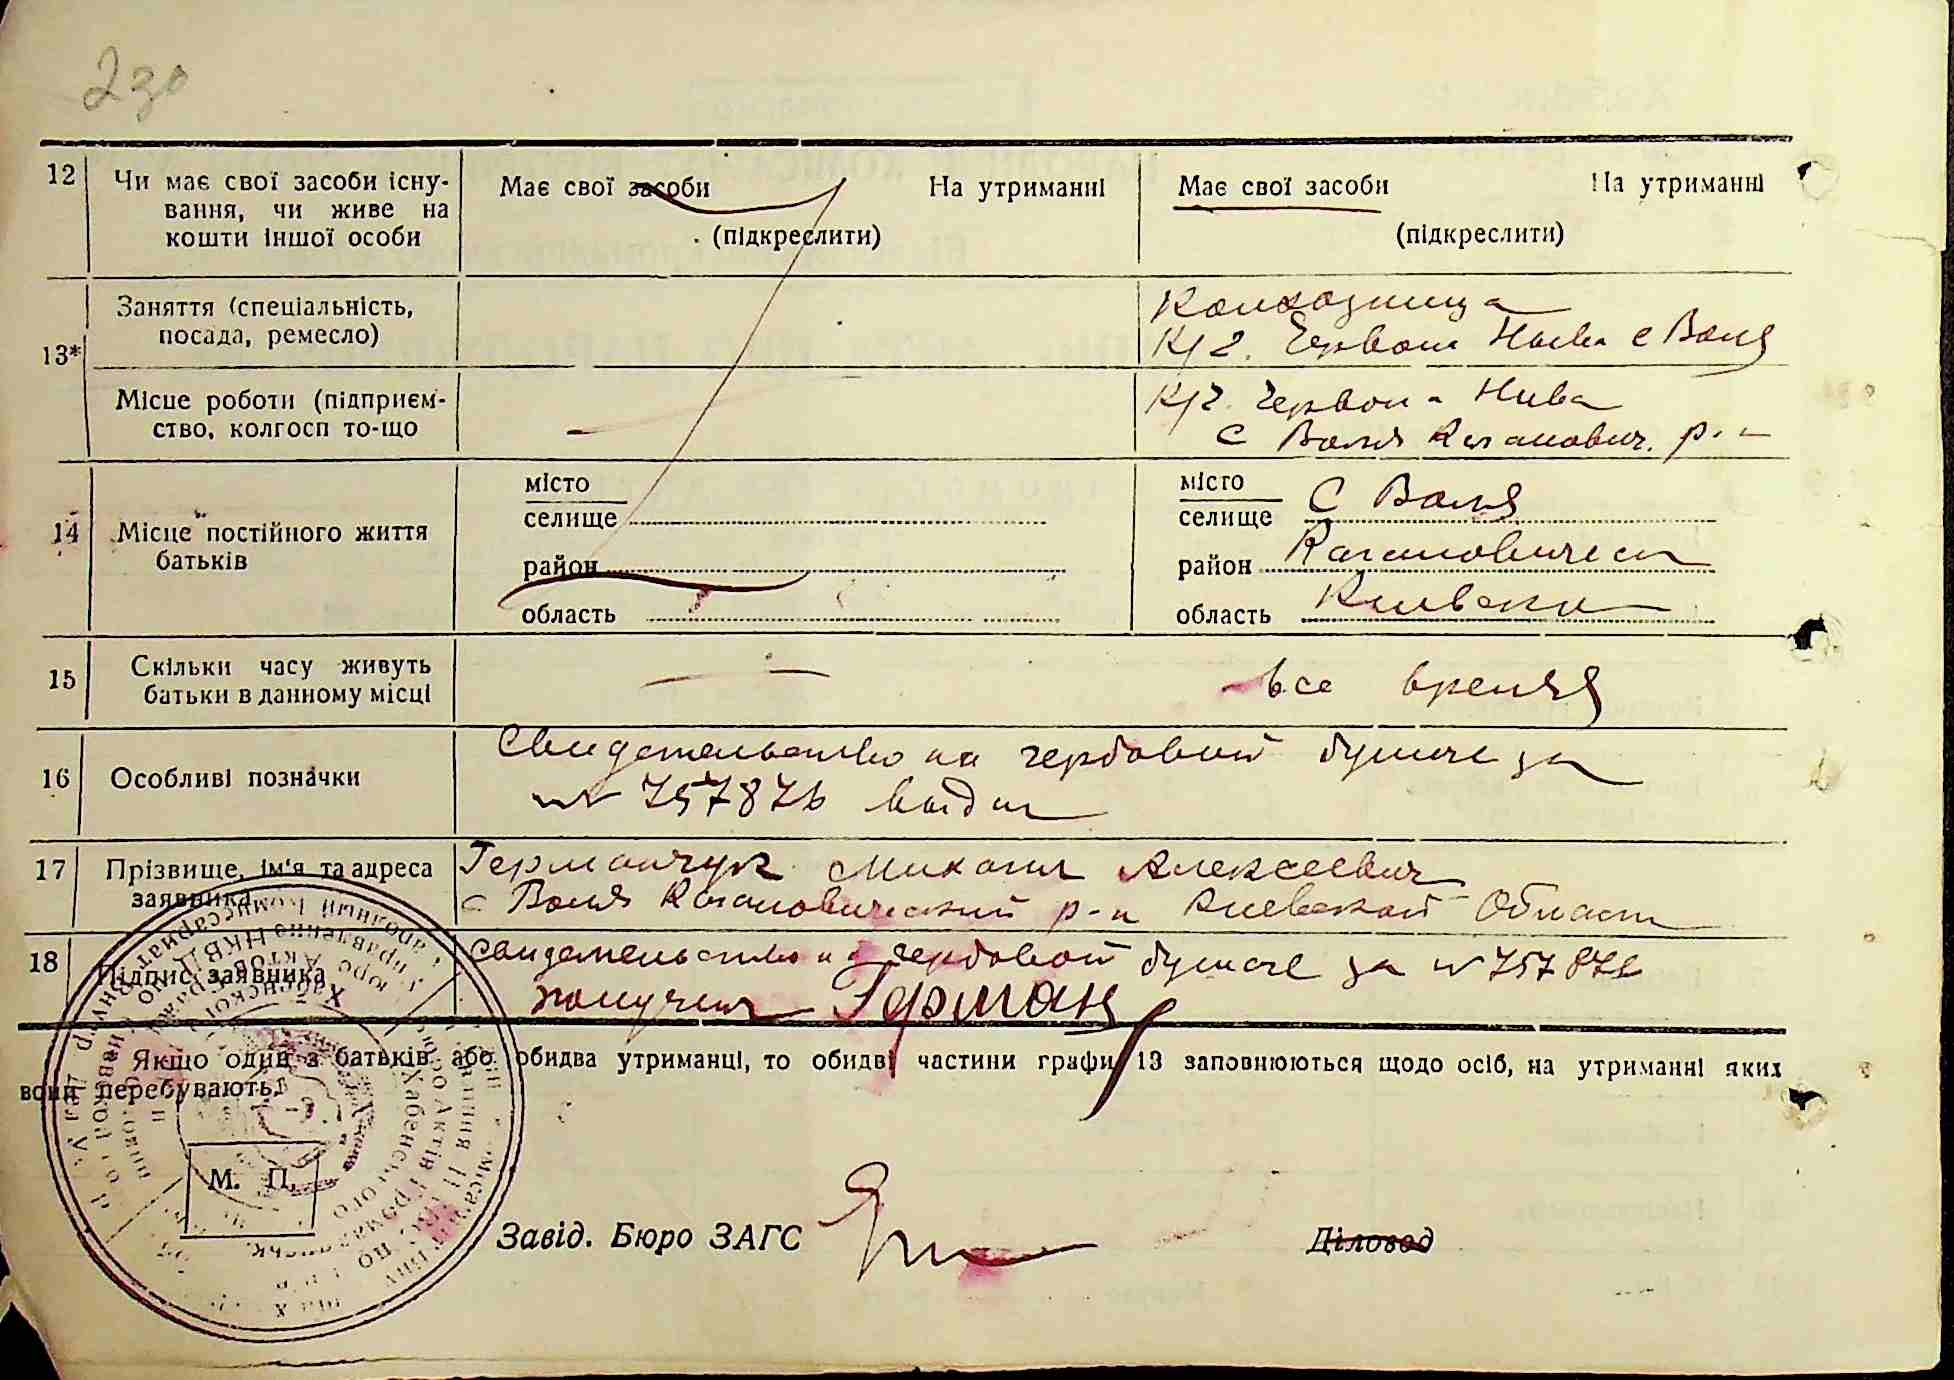 230
12 Чи має свої засоби існу-
вання, чи живе на
кошти іншої особи
Має свої засоби На утриманні
(підкреслити)
Має свої засоби На утриманні
(підкреслити)
13*
Заняття (спеціальність,
посада, ремесло)
Колхозница
К/г. Червона Нива с Воля
Місце роботи (підприєм-
ство, колгосп то-що
К/г. Червона Нива
с Воля Каганович. р-н
14 Місце постійного життя
батьків
місто
селище
район
область
місто
селище С Воля
район Кагановическ
область Киевская
15 Скільки часу живуть
батьки в данному місці
— все время
16 Особливі позначки
Свидетельство на гербовой бумаге за
№ 757876 выдан
17 Прізвище, ім'я та адреса
заявника
Германчук Михаил Алексеевич
с Воля Кагановический р-н Киевской Област
18 Підпис заявника
Свидетельство на гербовой бумаге за №
получил Герман
Якщо один з батьків або обидва утриманці, то обидві частини графи 13 заповнюються щодо осіб, на утриманні яких
вони перебувають.
М. П.
Завід. Бюро ЗАГС
Діловод